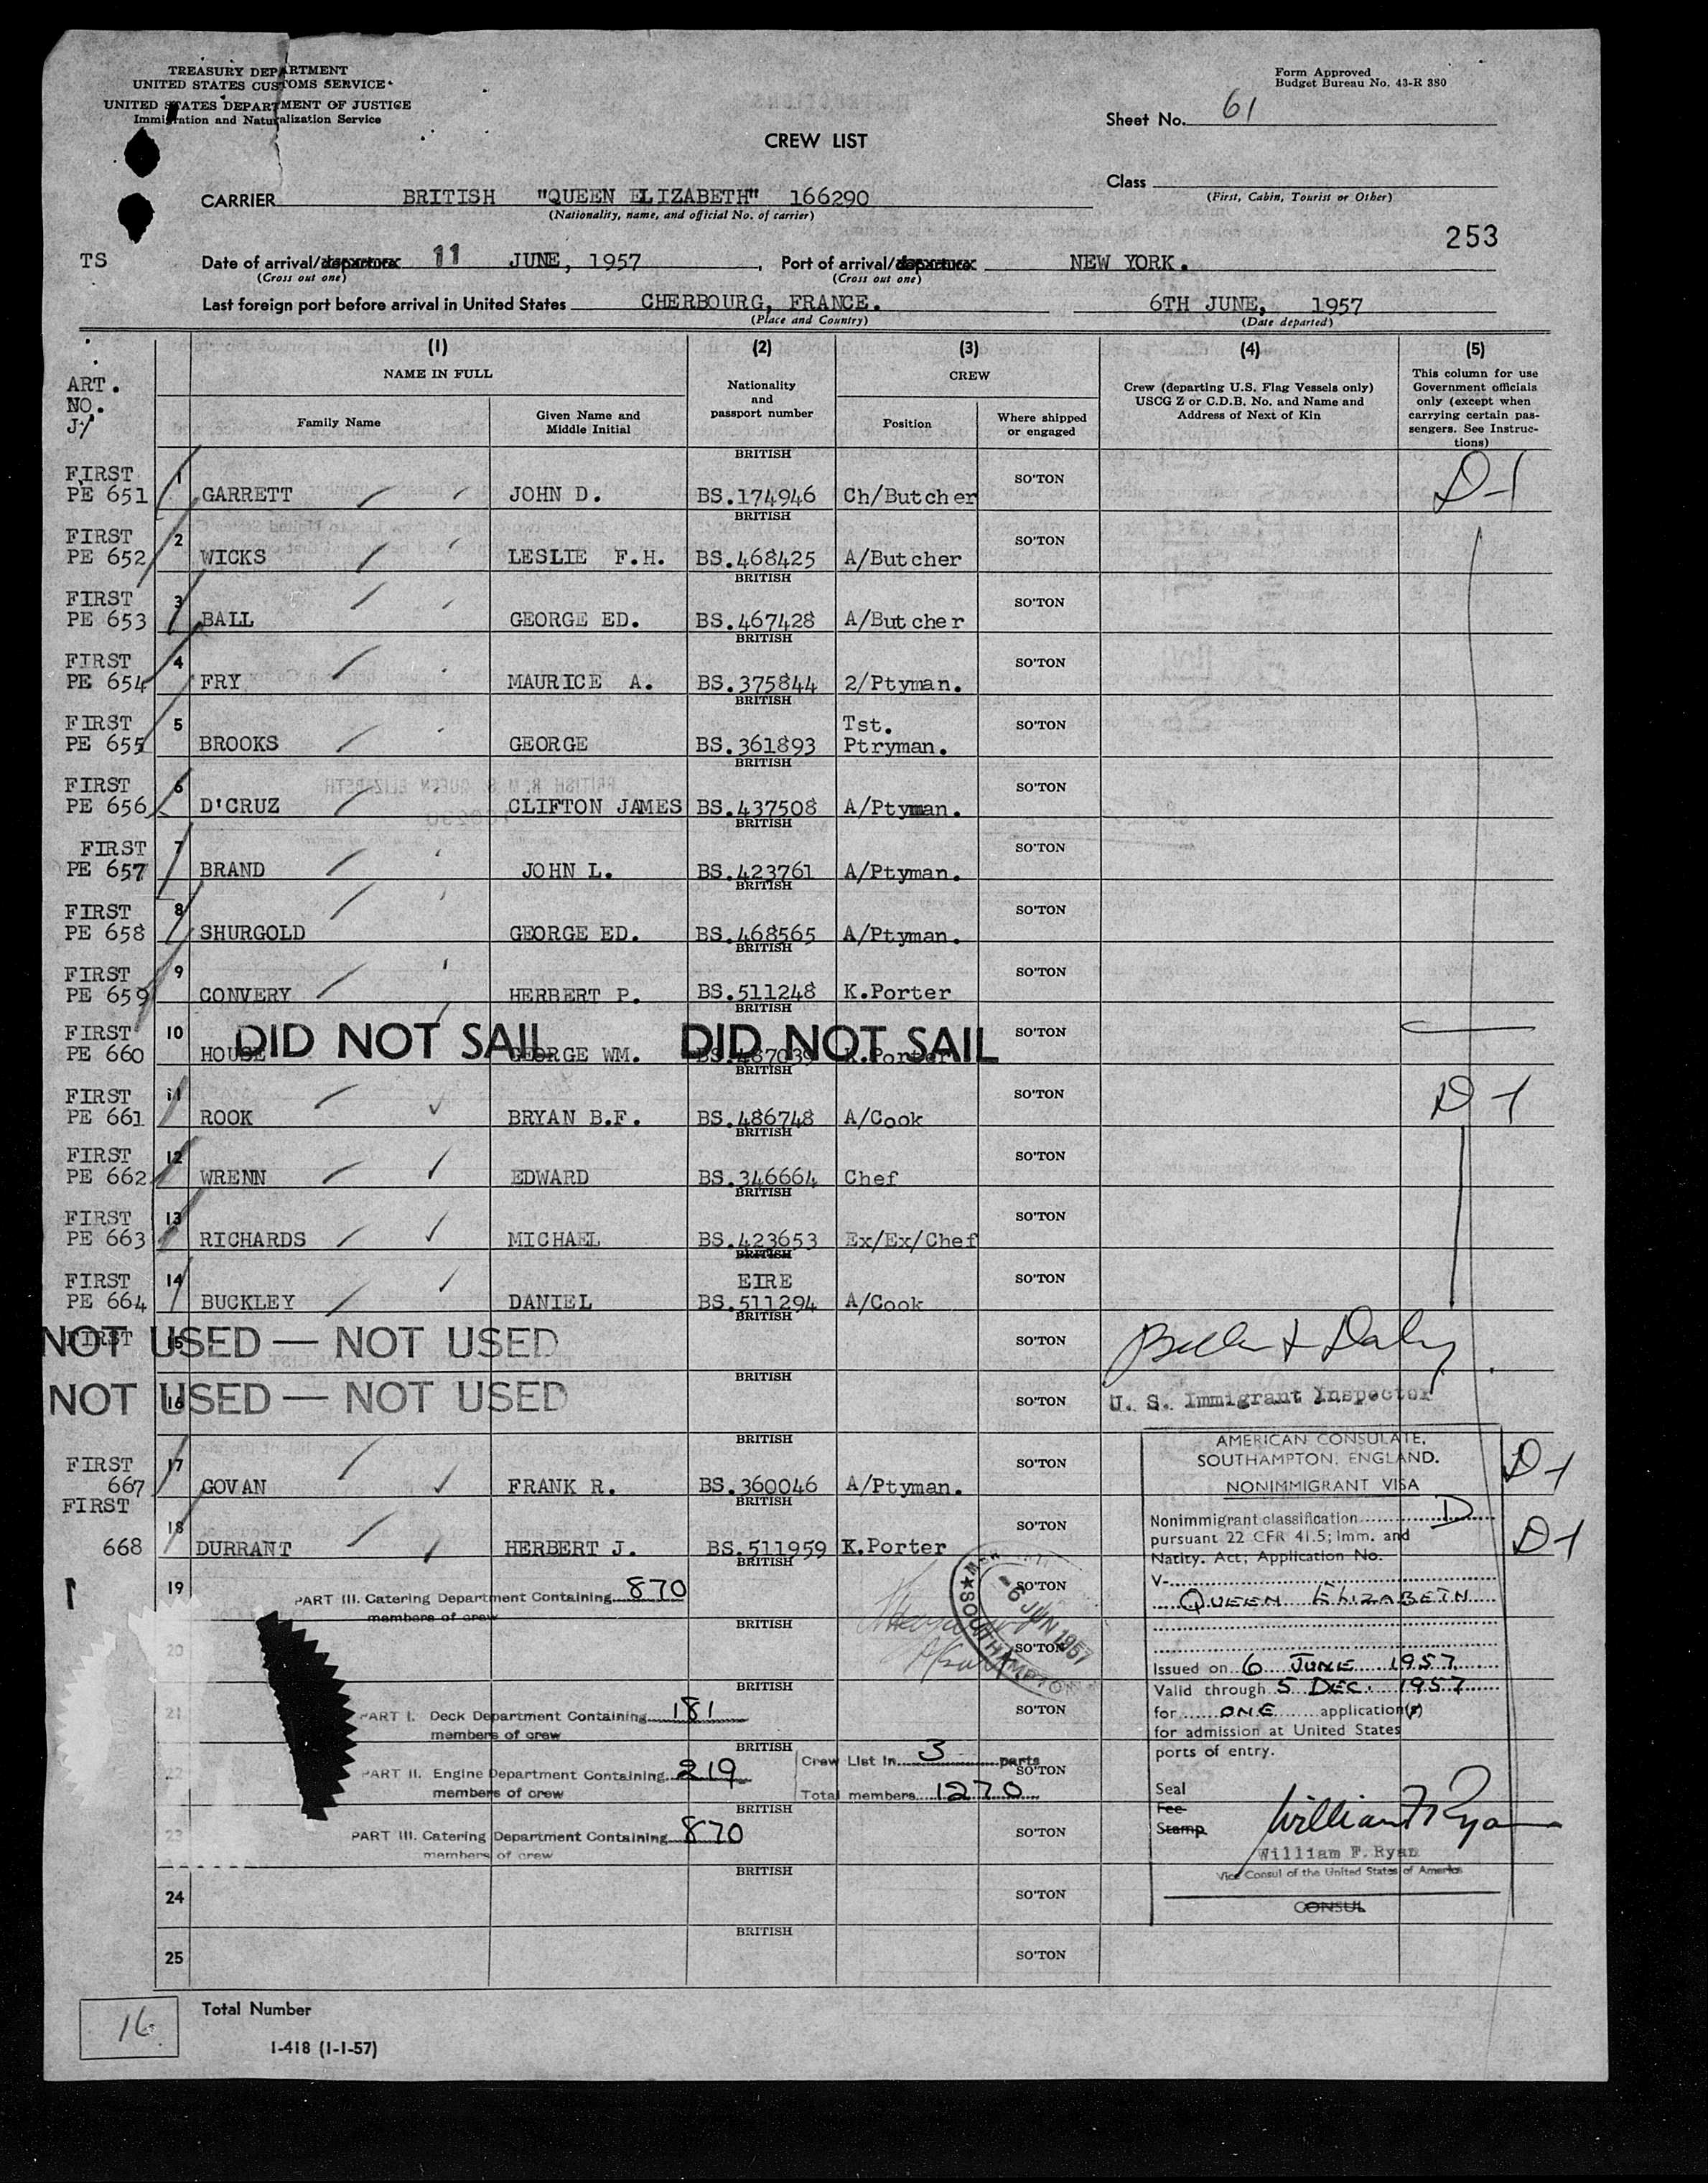 TREASURY DEPARTMENT
UNITED STATES CUSTOMS SERVICE
UNITED STATES DEPARTMENT OF JUSTICE
Immigration and Naturalization Service
Form Approved
Budget Bureau No. 43-R 380
Sheet No. 61
CREW LIST
Class
(First, Cabin, Tourist or Other)
CARRIER BRITISH "QUEEN ELIZABETH" 166290
(Nationality, name, and official No. of carrier)
253
TS
Date of arrival/departure 11 JUNE, 1957, Port of arrival/departure NEW YORK.
(Cross out one) (Cross out one)
Last foreign port before arrival in United States CHERBOURG, FRANCE. 6TH JUNE, 1957
(Place and Country) (Date departed)
ART. NO. J/
(1) (2) (3) (4) (5)
NAME IN FULL
Family Name
Given Name and Middle Initial
Nationality and passport number
CREW
Position
Where shipped or engaged
Crew (departing U.S. Flag Vessels only) USCG Z or C.D.B. No. and Name and Address of Next of Kin
This column for use Government officials only (except when carrying certain passengers. See Instructions)
BRITISH
FIRST PE 651 1 GARRETT JOHN D. BS.174946 Ch/Butcher SO'TON D-1
BRITISH
FIRST PE 652 2 WICKS LESLIE F.H. BS.468425 A/Butcher SO'TON
BRITISH
FIRST PE 653 3 BALL GEORGE ED. BS.467428 A/Butcher SO'TON
BRITISH
FIRST PE 654 4 FRY MAURICE A. BS.375844 2/Ptyman. SO'TON
BRITISH
FIRST PE 655 5 BROOKS GEORGE BS.361893 Tst. Ptryman. SO'TON
BRITISH
FIRST PE 656 6 D'CRUZ CLIFTON JAMES BS.437508 A/Ptyman. SO'TON
BRITISH
FIRST PE 657 7 BRAND JOHN L. BS.423761 A/Ptyman. SO'TON
BRITISH
FIRST PE 658 8 SHURGOLD GEORGE ED. BS.468565 A/Ptyman. SO'TON
BRITISH
FIRST PE 659 9 CONVERY HERBERT P. BS.511248 K.Porter SO'TON
BRITISH
FIRST PE 660 10 HOUSE GEORGE WM. BS.487039 K.Porter SO'TON
DID NOT SAIL DID NOT SAIL
BRITISH
FIRST PE 661 11 ROOK BRYAN B.F. BS.486748 A/Cook SO'TON D-1
BRITISH
FIRST PE 662 12 WRENN EDWARD BS.346664 Chef SO'TON
BRITISH
FIRST PE 663 13 RICHARDS MICHAEL BS.423653 Ex/Ex/Chef SO'TON
BRITISH
FIRST PE 664 14 BUCKLEY DANIEL EIRE BS.511294 A/Cook SO'TON
BRITISH
FIRST 15 NOT USED — NOT USED SO'TON
BRITISH
16 NOT USED — NOT USED SO'TON
U. S. Immigrant Inspector
BRITISH
FIRST 667 17 GOVAN FRANK R. BS.360046 A/Ptyman. SO'TON D-1
BRITISH
FIRST 668 18 DURRANT HERBERT J. BS.511959 K.Porter SO'TON D-1
BRITISH
19 PART III. Catering Department Containing 870 SO'TON
members of crew
BRITISH
20 SO'TON
SOUTHAMPTON
-6 JUN 1957
BRITISH
21 PART I. Deck Department Containing 181 SO'TON
members of crew
BRITISH
22 PART II. Engine Department Containing 219 SO'TON
members of crew
Crew List in 3 parts
Total members 1270
BRITISH
23 PART III. Catering Department Containing 870 SO'TON
members of crew
BRITISH
24 SO'TON
BRITISH
25 SO'TON
AMERICAN CONSULATE,
SOUTHAMPTON, ENGLAND.
NONIMMIGRANT VISA
Nonimmigrant classification D
pursuant 22 CFR 41.5; Imm. and
Natity. Act; Application No.
V-
QUEEN ELIZABETH
Issued on 6 JUNE 1957
Valid through 5 DEC. 1957
for ONE application(s)
for admission at United States
ports of entry.
Seal
Fee
Stamp
William F Ryan
William F. Ryan
Vice Consul of the United States of America
CONSUL
16
Total Number
I-418 (1-1-57)